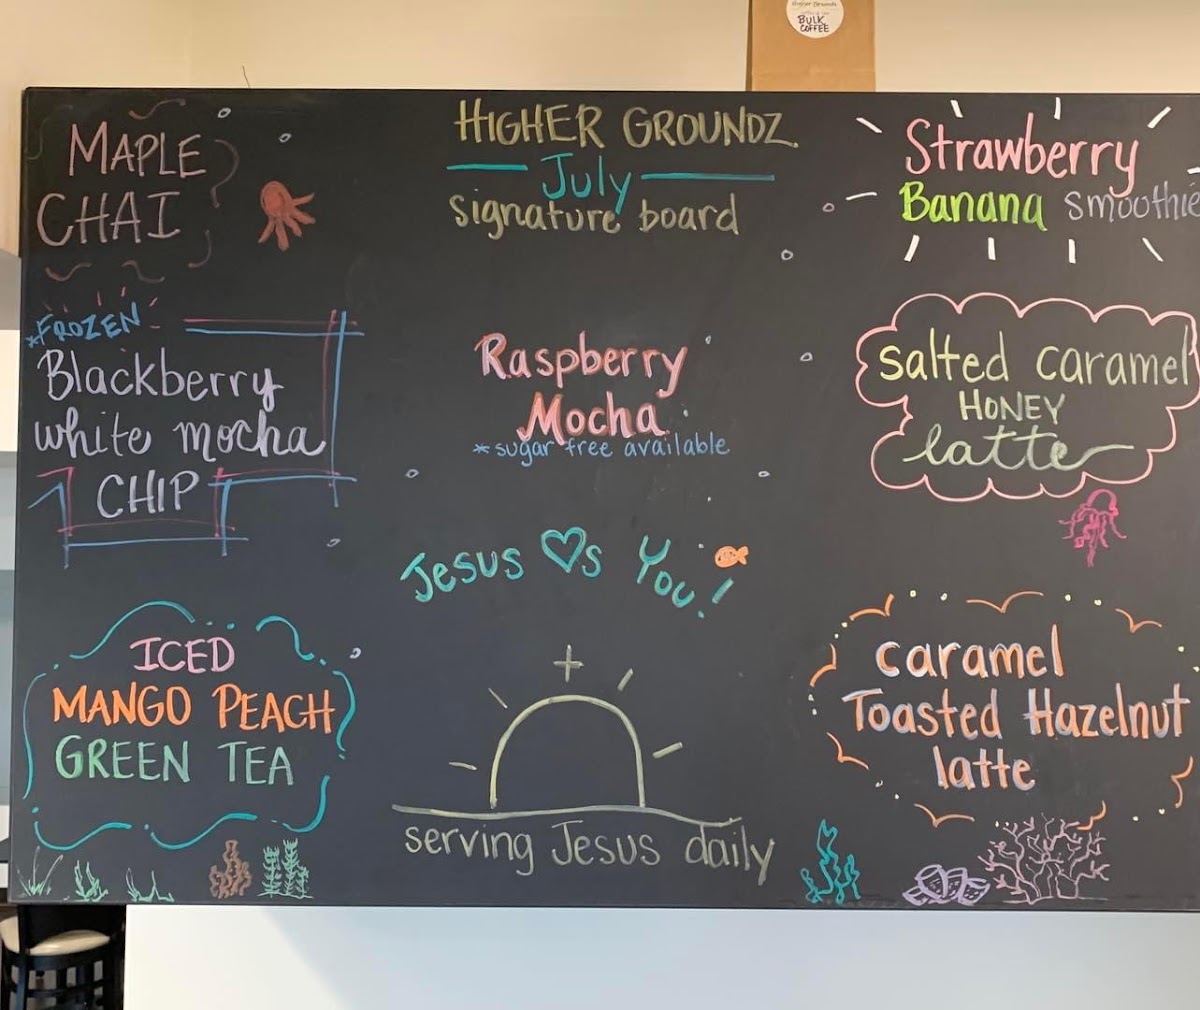 Higher Grounds
BULK
COFFEE
HIGHER GROUNDZ
July
signature board
MAPLE
CHAI
*FROZEN
Blackberry
white mocha
CHIP
ICED
MANGO PEACH
GREEN TEA
Raspberry
Mocha
*sugar free available
Jesus ♡s You!
serving Jesus daily
Strawberry
Banana smoothie
salted caramel
HONEY
latte
caramel
Toasted Hazelnut
latte